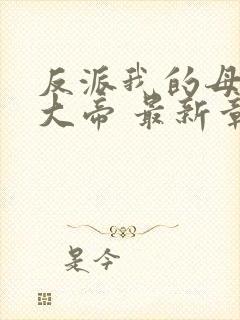 反派我的母
大帝 最新章
是今